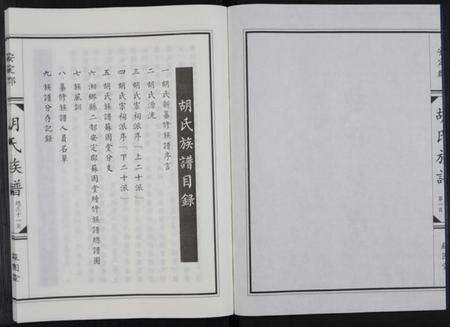 安定郡
胡氏族譜
第一頁
蘇園堂
胡氏族譜目錄
一 胡氏新纂修族譜序言
二 胡氏源流
三 胡氏宗祠派序「上二十派」
四 胡氏宗祠派序「下二十派」
五 胡氏族譜蘇園堂分支
六 湘鄉縣二都安定郡蘇園堂續修族譜總譜圖
七 族風訓
八 纂修族譜人員名單
九 族譜分存記錄
安定郡
胡氏族譜
蘇園堂